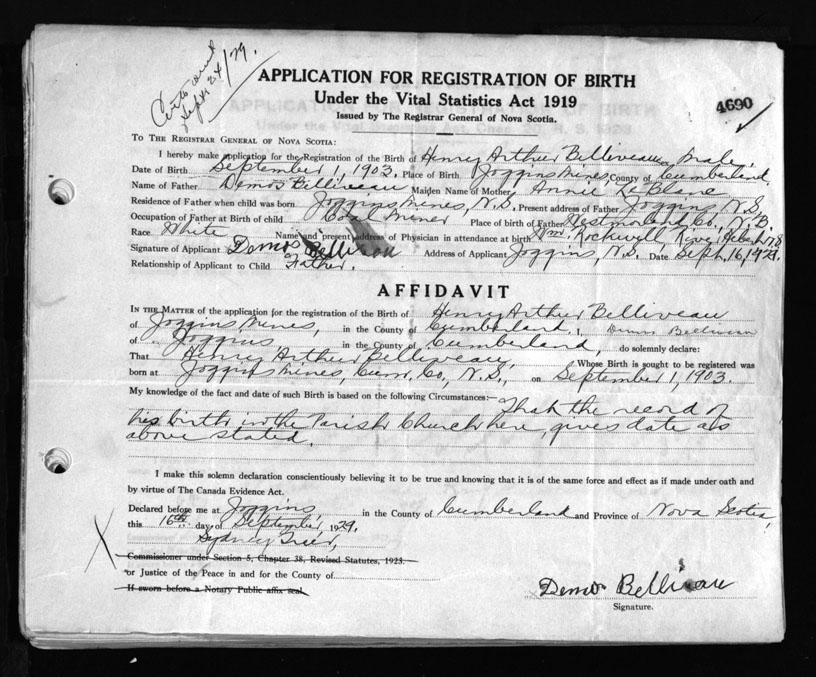 Sept. 24/29.
APPLICATION FOR REGISTRATION OF BIRTH
Under the Vital Statistics Act 1919
4690
Issued by The Registrar General of Nova Scotia.
TO THE REGISTRAR GENERAL OF NOVA SCOTIA:
I hereby make application for the Registration of the Birth of Henry Arthur Belliveau sex Male.
Date of Birth September 1, 1903, Place of Birth Joggins Mines, County of Cumberland.
Name of Father Demos Belliveau Maiden Name of Mother Annie LeBlanc
Residence of Father when child was born Joggins Mines, N.S. Present address of Father Joggins, N.S.
Occupation of Father at Birth of child Coal Miner Place of birth of Father Westmorland Co., N.B.
Race White Name and present address of Physician in attendance at birth Wm. Rockwell, River Hebert, N.S.
Signature of Applicant Demos Belliveau Address of Applicant Joggins, N.S. Date Sept. 16, 1929.
Relationship of Applicant to Child Father.
AFFIDAVIT
IN THE MATTER of the application for the registration of the Birth of Henry Arthur Belliveau
of Joggins Mines, in the County of Cumberland, I, Demos Belliveau
of Joggins in the County of Cumberland, do solemnly declare:
That Henry Arthur Belliveau, Whose Birth is sought to be registered was
born at Joggins Mines, Cum. Co., N.S., on September 1, 1903.
My knowledge of the fact and date of such Birth is based on the following Circumstances:- That the record of
his birth in the Parish Church here, gives date as
above stated.
I make this solemn declaration conscientiously believing it to be true and knowing that it is of the same force and effect as if made under oath and
by virtue of The Canada Evidence Act.
Declared before me at Joggins, in the County of Cumberland and Province of Nova Scotia,
this 16th day of September, 1929.
Sydney
Commissioner under Section 5, Chapter 38, Revised Statutes, 1923.
or Justice of the Peace in and for the County of
If sworn before a Notary Public affix seal
Demos Belliveau
Signature.